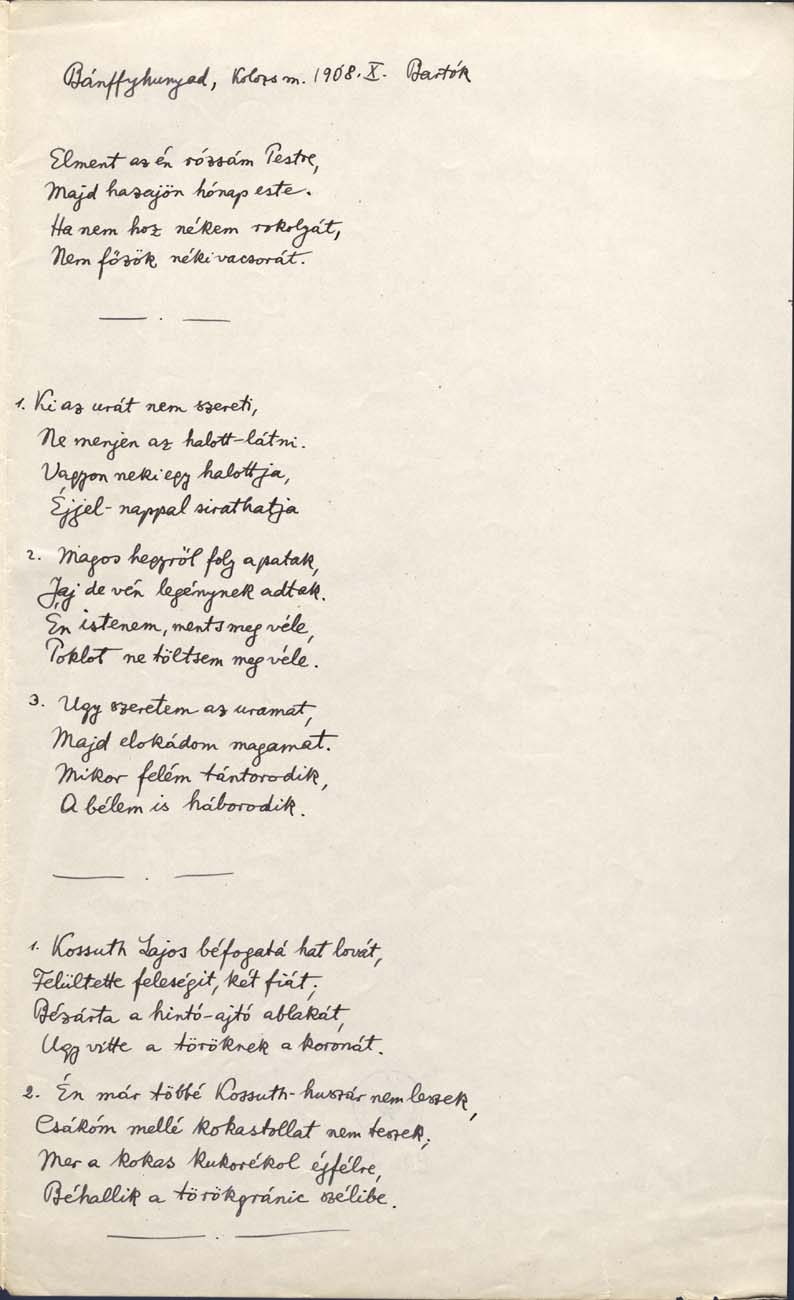 Bánffyhunyad, Kolozs m. 1908. X. Bartók
Elment az én rózsám Pestre,
Majd hazajön hónap este.
Ha nem hoz nékem rokolyát,
Nem főzök néki vacsorát.
1. Ki az urát nem szereti,
Ne menjen az halott-látni.
Vagyon neki egy halottja,
Éjjel-nappal sirathatja
2. Magos hegyről foly a patak,
Jaj de vén legénynek adtak.
Én istenem, ments meg véle,
Poklot ne töltsem meg véle.
3. Ugy szeretem az uramat,
Majd elokádom magamat.
Mikor felém tántorodik,
A bélem is háborodik.
1. Kossuth Lajos béfogatá hat lovát,
Felültette feleségit, két fiát;
Bézárta a hintó-ajtó ablakát,
Ugy vitte a töröknek a koronát.
2. Én már többé Kossuth-huszár nem leszek,
Csákóm mellé kokastollat nem teszek;
Mer a kokas kukorékol éjfélre,
Béhallik a törökgránic szélibe.